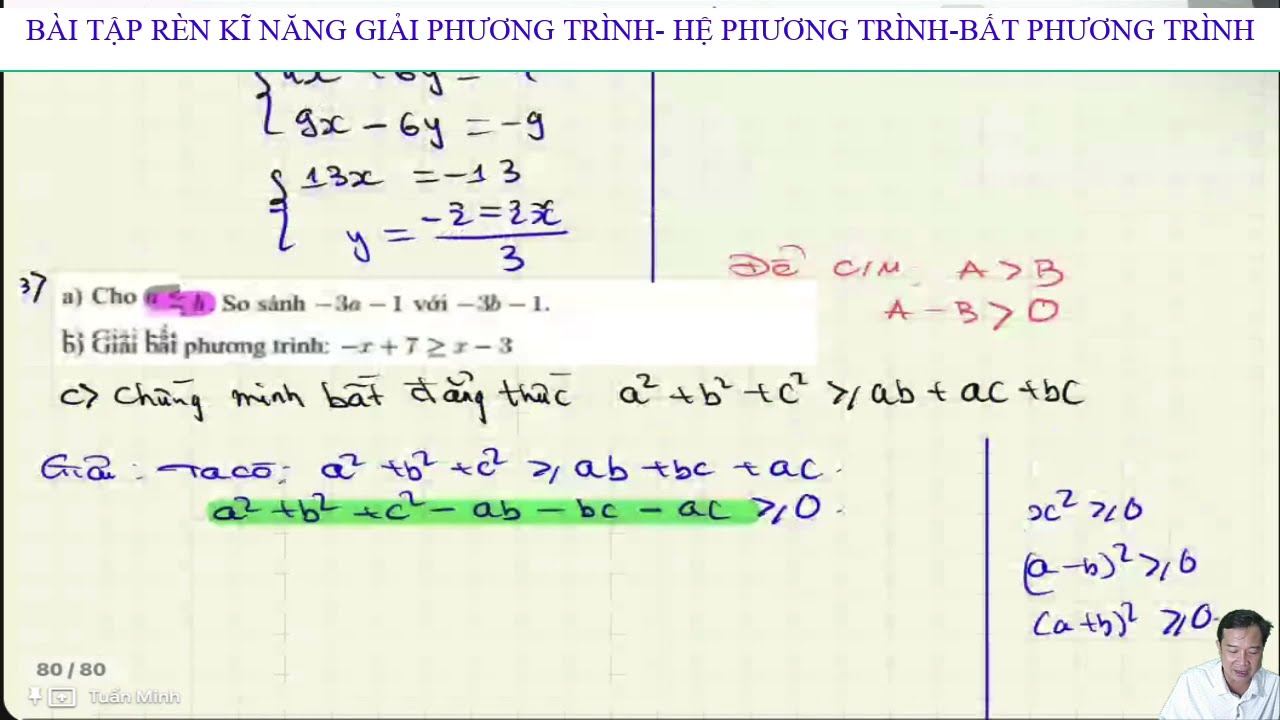 BÀI TẬP RÈN KĨ NĂNG GIẢI PHƯƠNG TRÌNH- HỆ PHƯƠNG TRÌNH-BẤT PHƯƠNG TRÌNH
9x - 6y = -9
13x = -13
y = (-2 = 2x)/3
Để C/M: A > B
A - B > 0
37
a) Cho a ≤ b. So sánh −3a − 1 với −3b − 1.
b) Giải bất phương trình: −x + 7 ≥ x − 3
c> chứng minh bất đẳng thức a² + b² + c² ≥ ab + ac + bc
Giải : Ta có: a² + b² + c² ≥ ab + bc + ac.
a² + b² + c² - ab - bc - ac ≥ 0.
x² ≥ 0
(a - b)² ≥ 0
(a + b)² ≥ 0.
80 / 80
Tuấn Minh